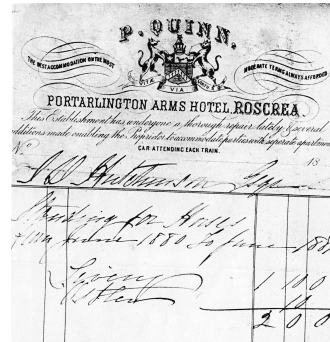 P. QUINN.
THE BEST ACCOMMODATION ON THE MOST
MODERATE TERMS ALWAYS AFFORDED
VIA
PORTARLINGTON ARMS HOTEL, ROSCREA.
This Establishment has undergone a thorough repair lately & several
additions made enabling the Proprietor to accommodate parties with separate apartments
CAR ATTENDING EACH TRAIN.
No 18
Hutchinson Esqr
Standing for Horses
from June 1880 To June 188
1 10 0
10
2 0 0